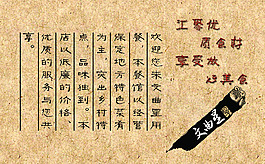 汇聚优
原食材
享受故
乡美食
欢迎您来文曲星用
餐，本餐馆以经营
保定地方特色菜肴
为主，突出乡村特
点，品味独到。本
店以低廉的价格
优质的服务与您共
享。
文曲星